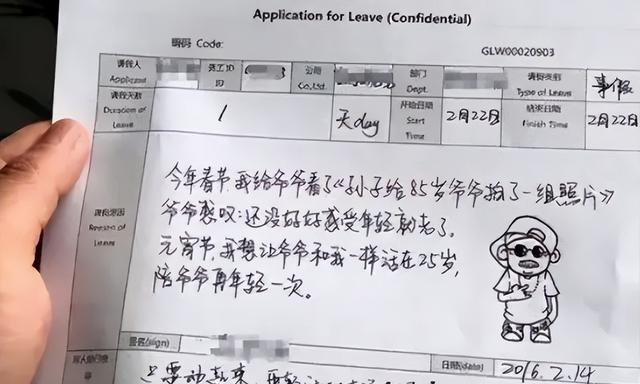 Application for Leave (Confidential)
编码 Code:
GLW00020903
请假人
Applicant
员工ID
ID
公司
Co,Ltd.
部门
Dept.
请假类别
Type of Leave
事假
请假天数
Duration of Leave
1
天day
开始日期
Start Time
2月22日
结束日期
Finish Time
2月22日
请假原因
Reason of Leave
今年春节,我给爷爷看了《孙子给85岁爷爷拍了一组照片》
爷爷感叹:还没好好感受年轻就老了。
元宵节,我想让爷爷和我一样活在25岁,
陪爷爷再年轻一次。
签名(sign)
日期(date)
2016.2.14